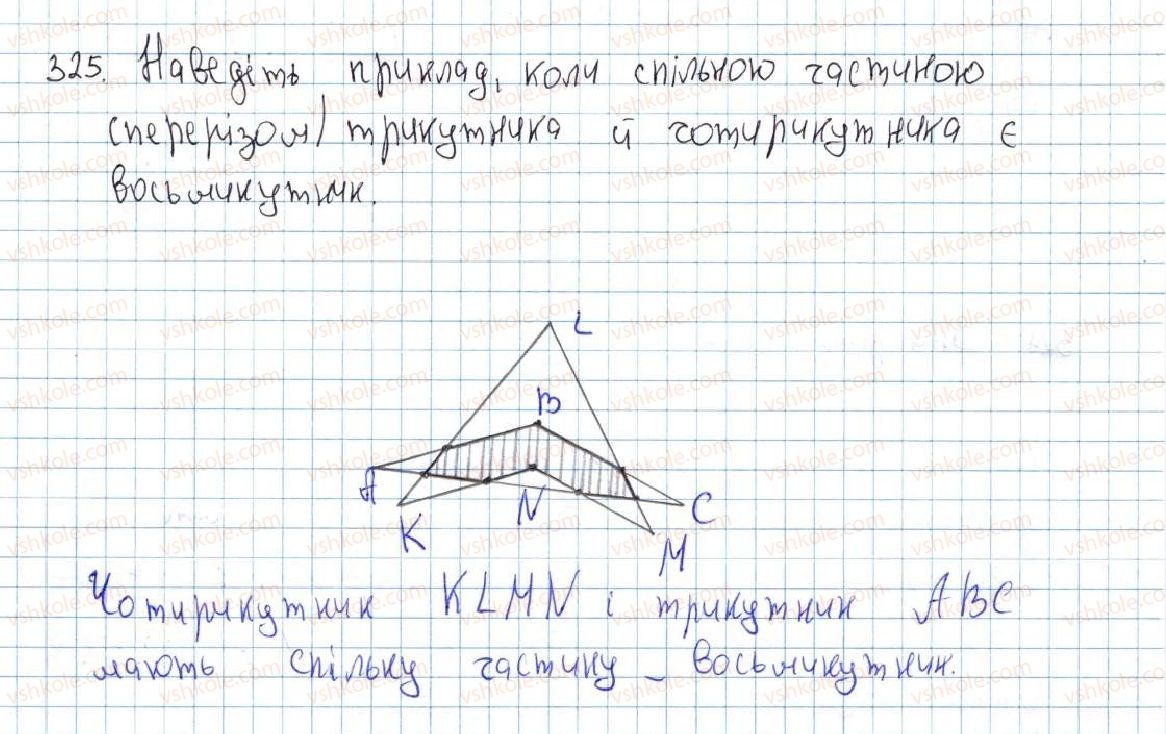 325. Наведіть приклад, коли спільною частиною
(перерізом) трикутника й чотирикутника є
восьмикутник.
L
B
A
N
C
K
M
Чотирикутник KLMN і трикутник ABC
мають спільну частину - восьмикутник.
vshkole.com